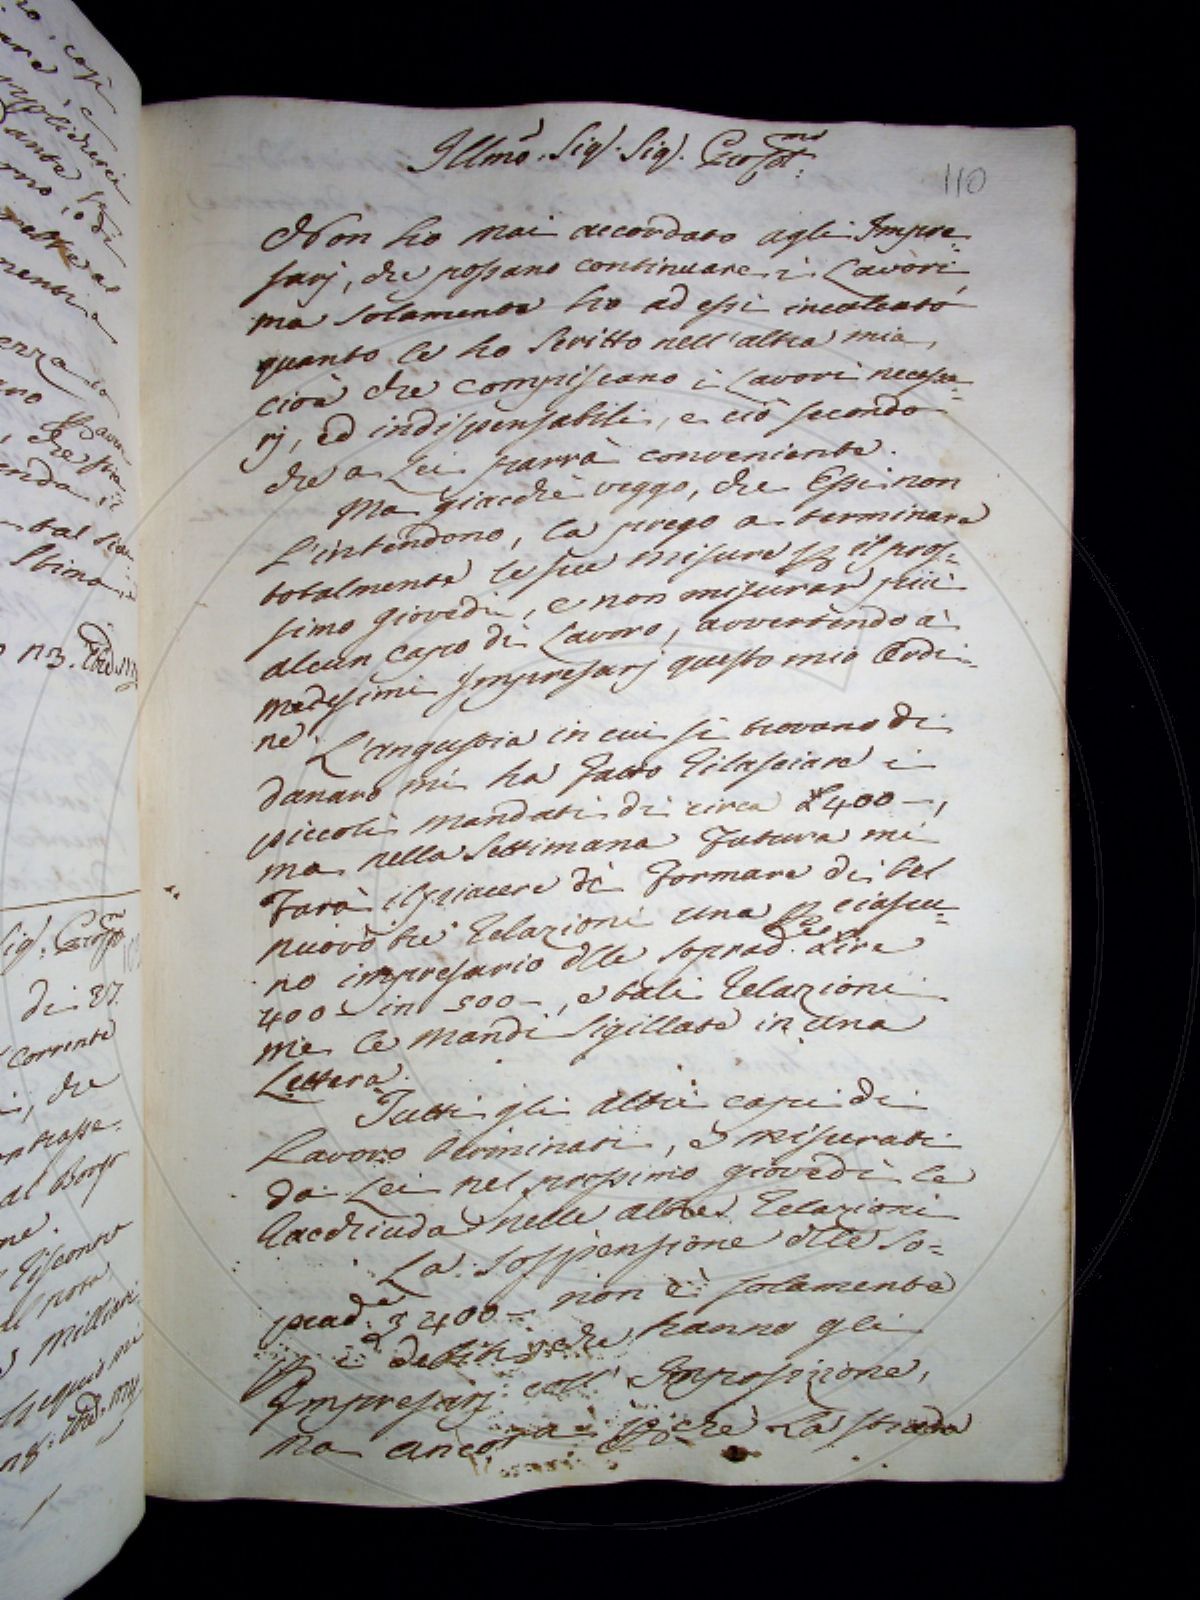 Illmo. Sig. Sig. Pron Colmo.
110
Non ho mai accordato agli Impre=
sarj, che possano continuare i Lavori,
ma solamente ho ad essi inculcato
quanto le ho scritto nell'altra mia,
cioè che compiscano i Lavori necessa=
rj, ed indispensabili, e ciò secondo
che a Lei parrà conveniente.
Ma giacchè veggo, che Essi non
l'intendono, la prego a terminare
totalmente le sue misure p il pros=
simo giovedì, e non misurar più
alcun capo di Lavoro, avvertendo a'
medesimi Impresarj questo mio Ordi=
ne.
L'angustia in cui si trovano di
danaro mi ha fatto rilasciare i
piccoli mandati di circa £ 400 -,
ma nella settimana futura mi
farà il piacere di formare di bel
nuovo tre relazioni una p ciascu=
no impresario dlle soprad.e Lire
400 - in 500 -, e tali relazioni
me le mandi sigillate in una
Lettera.
Tutti gli altri capi di
Lavoro terminati, e misurati
da Lei nel prossimo giovedì le
racchiuda nelle altre relazioni
La sospensione dlle so=
prad.e £ 400 - non è solamente
p i debiti, che hanno gli
Impresarj coll' Imposizione,
ma ancora p chè La strada
di 27.
corrente
, che
al Borgo